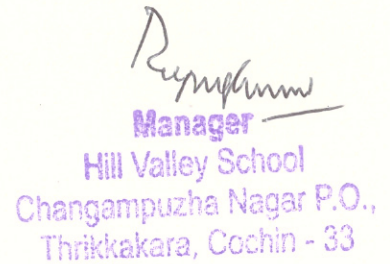 Manager
Hill Valley School
Changampuzha Nagar P.O.,
Thrikkakara, Cochin - 33